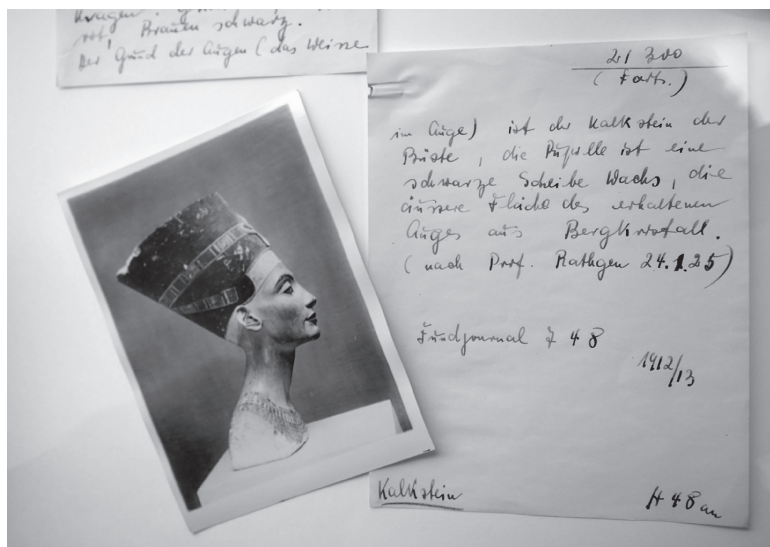 Kragen.
rot, Brauen schwarz.
Der Grund der Augen (das Weisse
21 300
(Forts.)
im Auge) ist der Kalkstein der
Büste, die Pupille ist eine
schwarze Scheibe Wachs, die
äussere Fläche des erhaltenen
Auges aus Bergkristall.
(nach Prof. Rathgen 24.1.25)
Fundjournal 748
1912/13
Kalkstein
H 48 cm